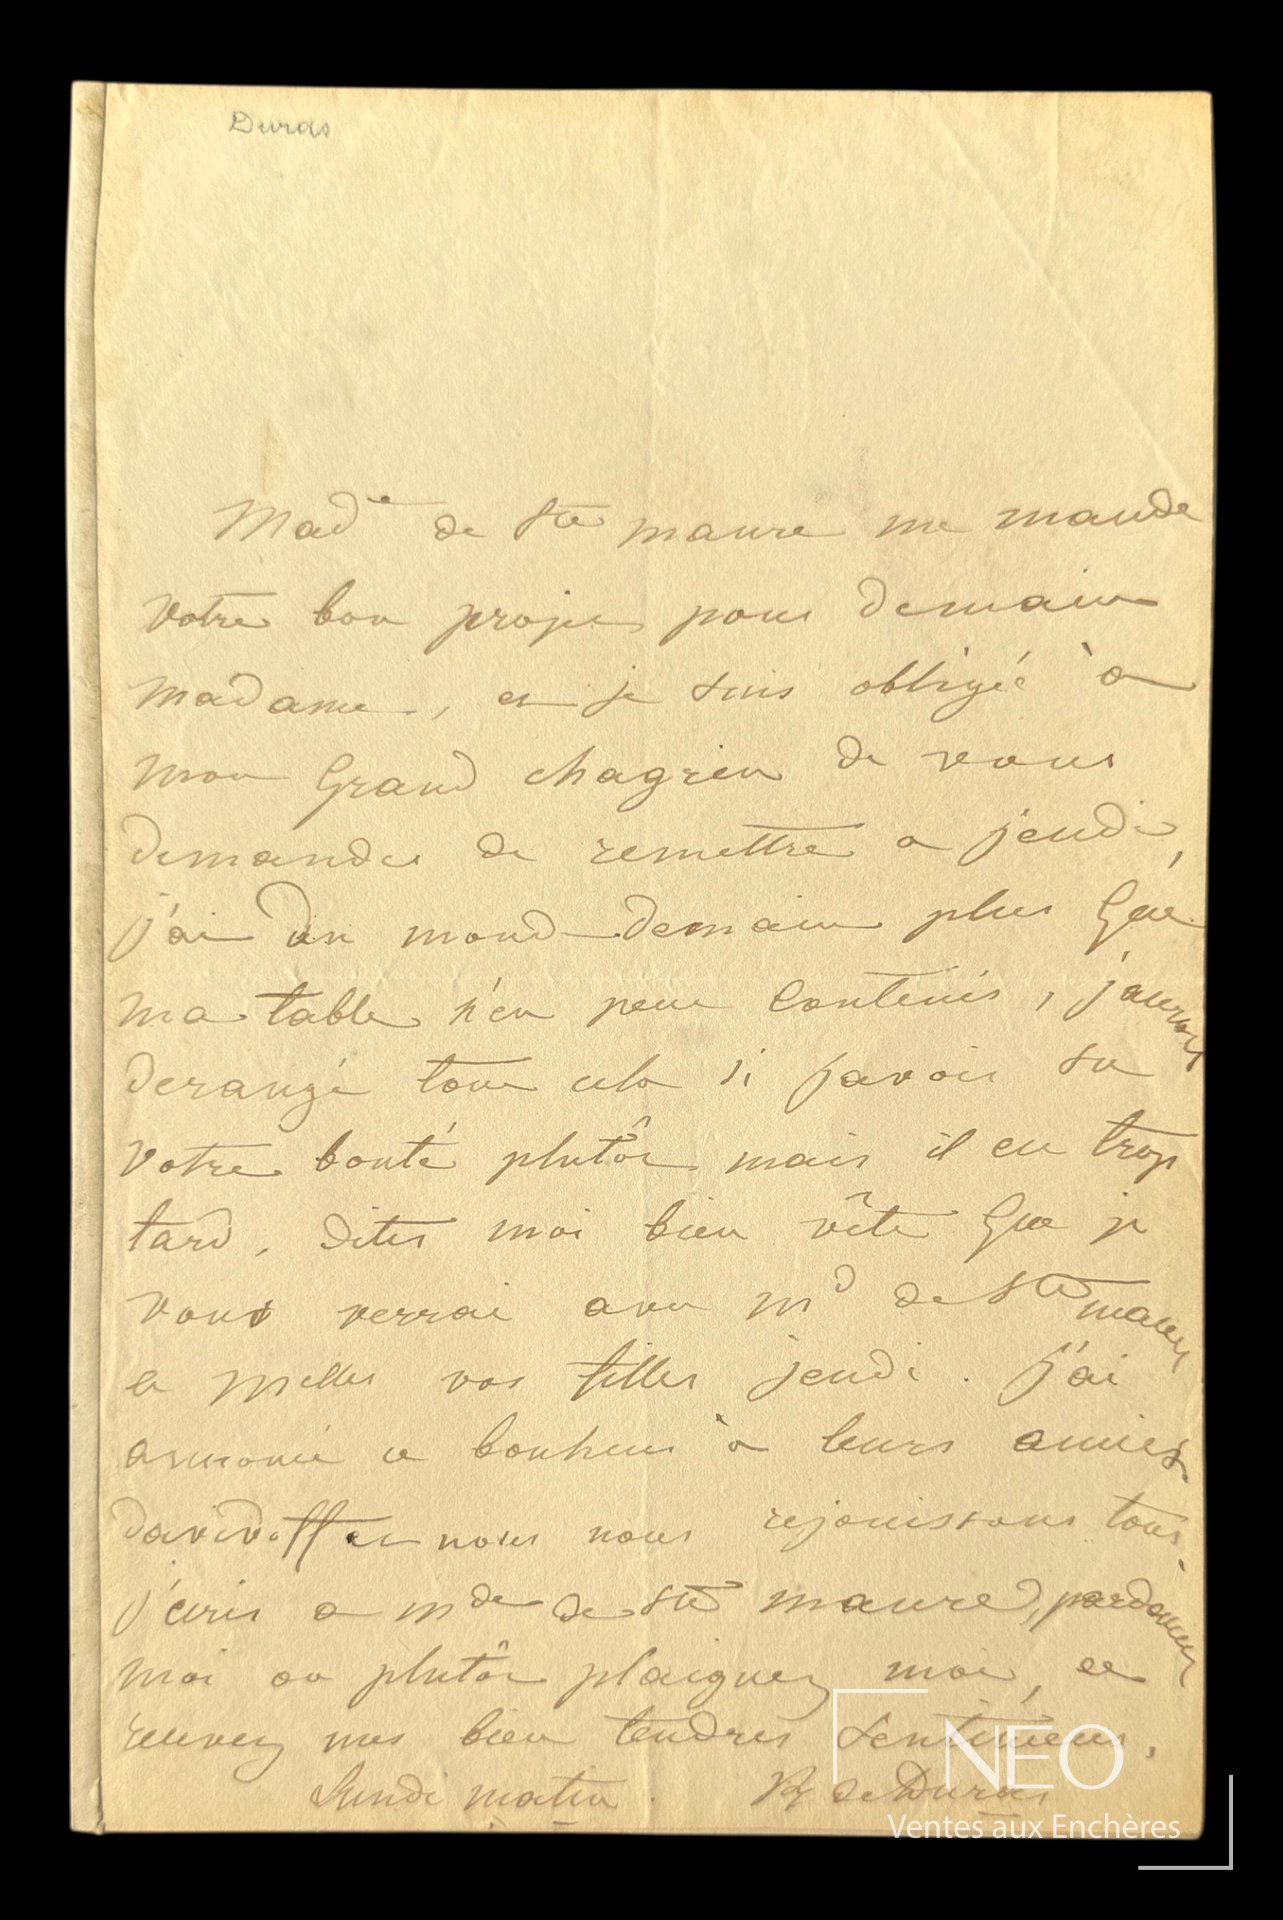 Duras
Mad^e de Ste maure me mande
votre bon projet pour demain
madame, et je suis obligée à
mon Grand chagrin de vous
demander de remettre a jeudi,
j'ai du monde demain plus Que
ma table n'en peut Contenir, j'aurois
derangé tout cela si j'avois su
votre bonté plutôt mais il est trop
tard, dites moi bien vîte Que je
vous verrai avec m^d de Ste maure
et m^elles vos filles jeudi. J'ai
annoncé ce bonheur à leurs amies
davidoff et nous nous rejouissons tous.
j'écris a m^de de Ste maure, pardonnez
moi ou plutôt plaignez moi, et
recevez mes bien tendres Sentimens.
Lundi matin. de Duras
NEO
Ventes aux Enchères